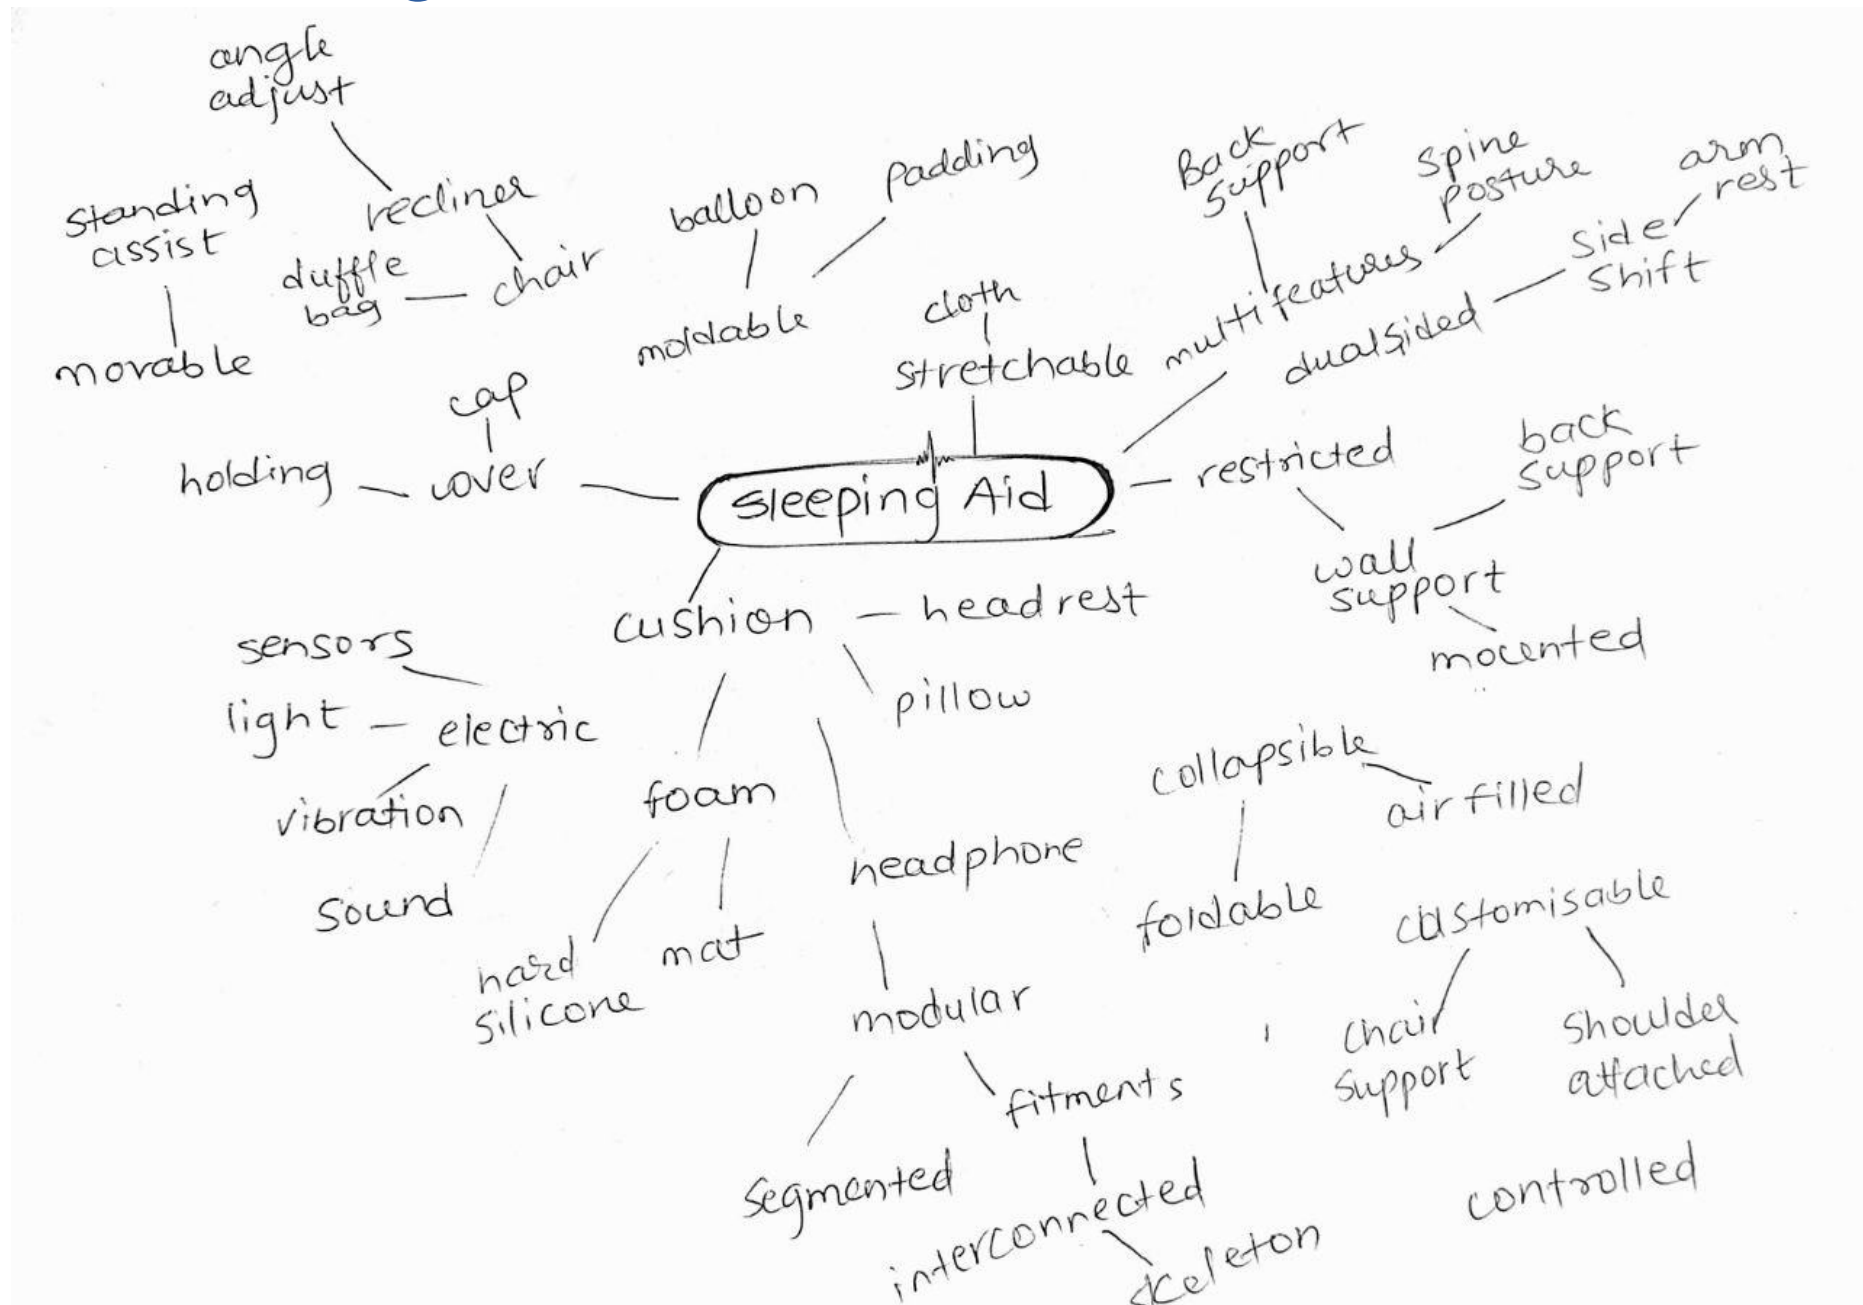 angle
adjust
Standing
assist
recliner
duffle
bag
chair
movable
balloon
Padding
moldable
cloth
Stretchable
Back
Support
Spine
Posture
arm
rest
multifeatures
Side
Shift
dualsided
cap
holding
cover
Sleeping Aid
restricted
back
support
wall
support
mounted
cushion
headrest
pillow
sensors
light
electric
vibration
Sound
foam
hard
silicone
mat
headphone
modular
Segmented
fitments
interconnected
skeleton
collapsible
air filled
foldable
customisable
Chair
Support
Shoulder
attached
controlled